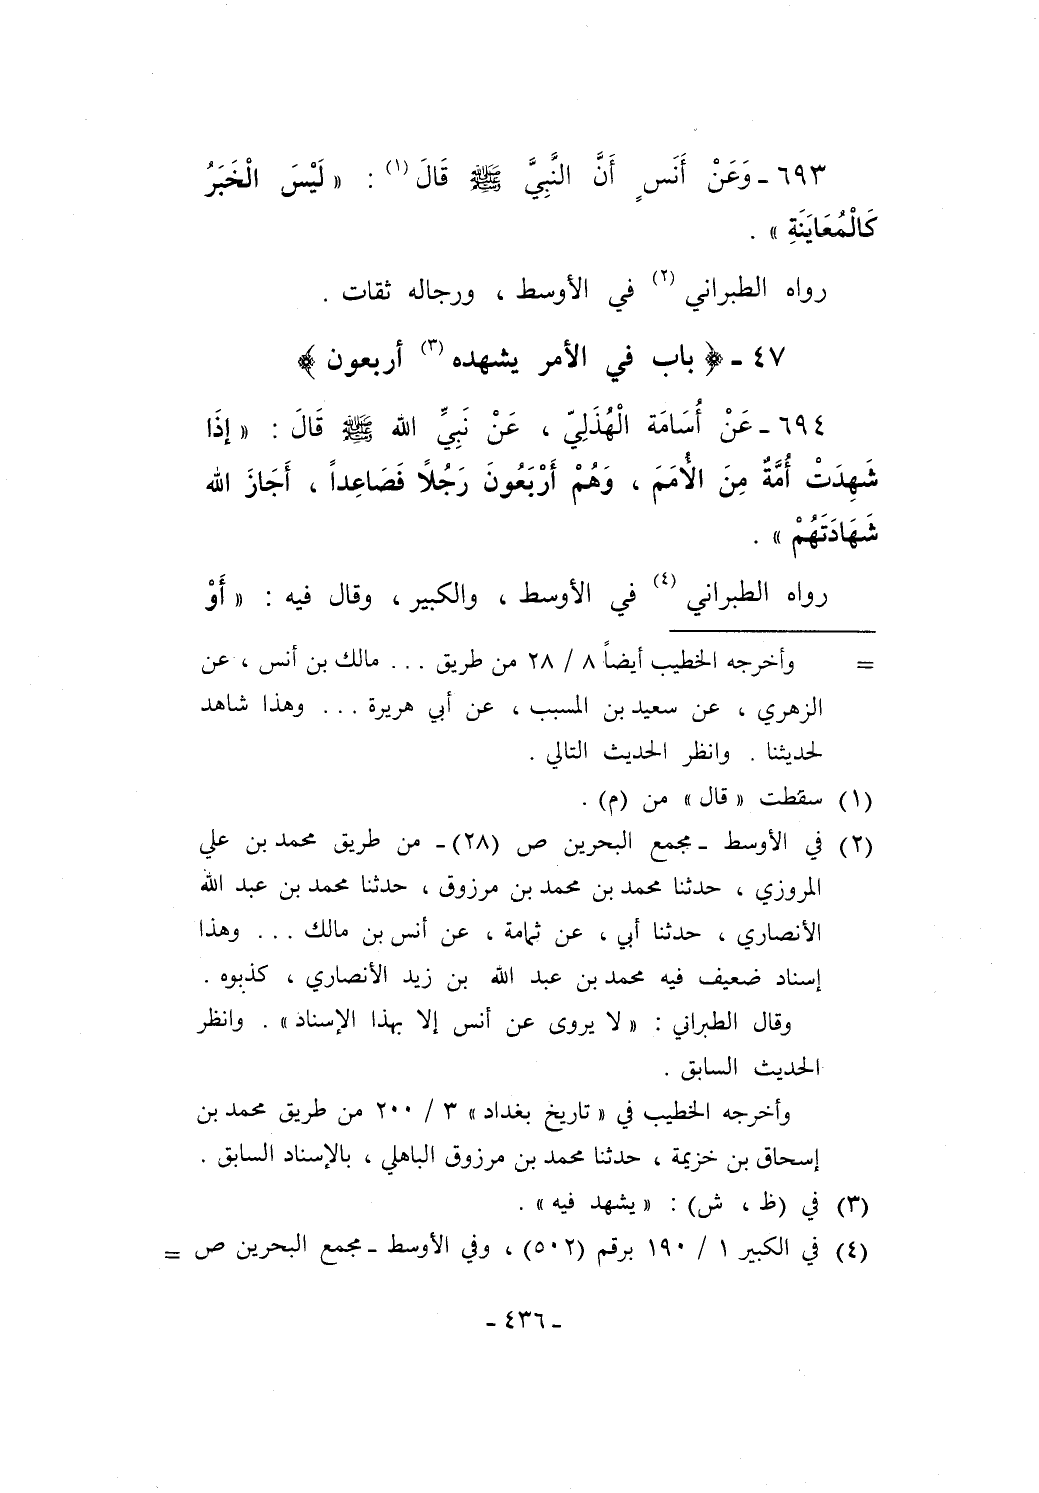 ٦٩٣ ـ وَعَنْ أَنَسٍ أَنَّ النَّبِيَّ ﷺ قَالَ (١) : « لَيْسَ الْخَبَرُ
كَالْمُعَايَنَةِ » .
رواه الطبراني (٢) في الأوسط ، ورجاله ثقات .
٤٧ ـ ﴿ باب في الأمر يشهده (٣) أربعون ﴾
٦٩٤ ـ عَنْ أُسَامَة الْهُذَلِيّ ، عَنْ نَبِيِّ الله ﷺ قَالَ : « إذَا
شَهِدَتْ أُمَّةٌ مِنَ الأُمَمَ ، وَهُمْ أَرْبَعُونَ رَجُلًا فَصَاعِداً ، أَجَازَ الله
شَهَادَتَهُمْ » .
رواه الطبراني (٤) في الأوسط ، والكبير ، وقال فيه : « أَوْ
= وأخرجه الخطيب أيضاً ٨ / ٢٨ من طريق ... مالك بن أنس ، عن
الزهري ، عن سعيد بن المسبب ، عن أبي هريرة ... وهذا شاهد
لحديثنا . وانظر الحديث التالي .
(١) سقطت « قال » من (م) .
(٢) في الأوسط ـ مجمع البحرين ص (٢٨) ـ من طريق محمد بن علي
المروزي ، حدثنا محمد بن محمد بن مرزوق ، حدثنا محمد بن عبد الله
الأنصاري ، حدثنا أبي ، عن ثمامة ، عن أنس بن مالك ... وهذا
إسناد ضعيف فيه محمد بن عبد الله بن زيد الأنصاري ، كذبوه .
وقال الطبراني : « لا يروى عن أنس إلا بهذا الإسناد » . وانظر
الحديث السابق .
وأخرجه الخطيب في « تاريخ بغداد » ٣ / ٢٠٠ من طريق محمد بن
إسحاق بن خزيمة ، حدثنا محمد بن مرزوق الباهلي ، بالإسناد السابق .
(٣) في (ظ ، ش) : « يشهد فيه » .
(٤) في الكبير ١ / ١٩٠ برقم (٥٠٢) ، وفي الأوسط ـ مجمع البحرين ص =
ـ ٤٣٦ ـ